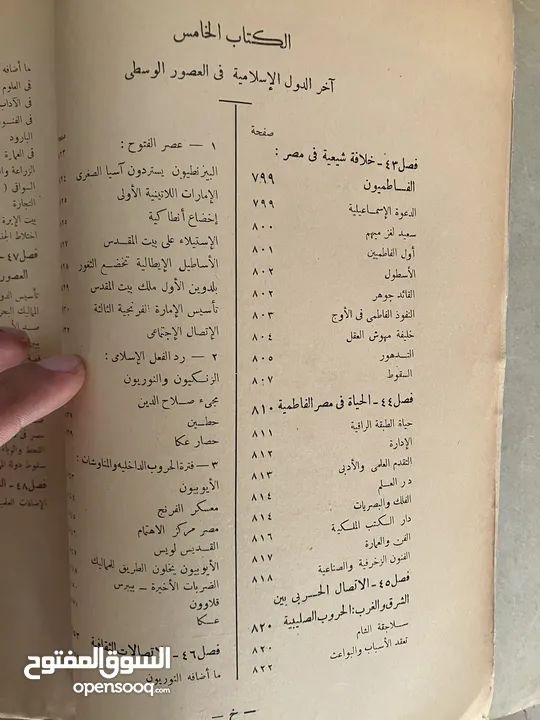 الكتاب الخامس
آخر الدول الإسلامية فى العصور الوسطى
صفحة
فصل ٤٣ - خلافة شيعية فى مصر :
الفاطميون ٧٩٩
الدعوة الإسماعيلية ٧٩٩
سعيد لغز مبهم ٨٠٠
أول الفاطميين ٨٠١
الأسطول ٨٠٢
القائد جوهر ٨٠٢
النفوذ الفاطمى فى الأوج ٨٠٣
خليفة مهوش العقل ٨٠٤
التدهور ٨٠٥
السقوط ٨٠٧
فصل ٤٤ - الحياة فى مصر الفاطمية ٨١٠
حياة الطبقة الراقية ٨١١
الإدارة ٨١٢
التقدم العلمى والأدبى ٨١٣
در العلم ٨١٤
الفلك والبصريات ٨١٤
دار الكتب الملكية ٨١٦
الفن والعمارة ٨١٧
الفنون الزخرفية والصناعية ٨١٨
فصل ٤٥ - الاتصال الحربى بين
الشرق والغرب : الحروب الصليبية ٨٢٠
سلاجقة الشام ٨٢٠
تعقد الأسباب والبواعث ٨٢٢
١ — عصر الفتوح :
البيزنطيون يستردون آسيا الصغرى
الإمارات اللاتينية الأولى
إخضاع أنطاكية
الإستيلاء على بيت المقدس
الأساطيل الإيطالية تخضع الثغور
بلدوين الأول ملك بيت المقدس
تأسيس الإمارة الفرنجية الثالثة
الإتصال الإجتماعى
٢ — رد الفعل الإسلامى :
الزنكيون والنوريون
مجىء صلاح الدين
حطين
حصار عكا
٣ — فترة الحروب الداخلية والمناوشات :
الأيوبيون
معسكر الفرنج
مصر مركز الاهتمام
القديس لويس
الأيوبيون يخلون الطريق للمماليك
الضربات الأخيرة — بيبرس
قلاوون
عكا
فصل ٤٦ - الاتصالات الثقافية
ما أضافه النوريون
— خ —
ما أضافه
فى العلوم
فى الآداب
فى الفنو
البارود
فى العمارة
الزراعة وال
السواقى (
التجارة
بيت الإبرة
فصل ٤٧ -
العصور
تأسيس الدو
فصل ٤٨ -
السوق المفتوح
opensooq.com